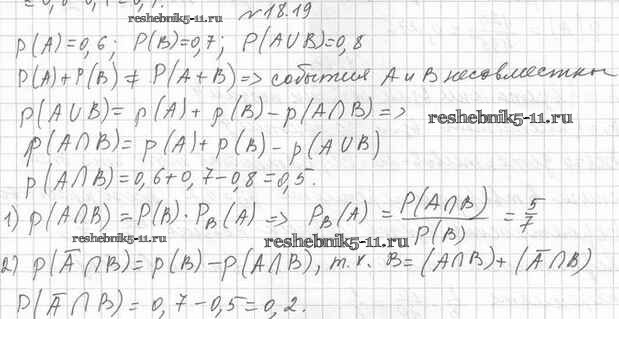 №18.19
reshebnik5-11.ru
P(A)=0,6; P(B)=0,7; P(A∪B)=0,8
P(A)+P(B)≠P(A+B)=> события A и B несовместны
P(A∪B)=P(A)+P(B)-P(A∩B)=>
reshebnik5-11.ru
P(A∩B)=P(A)+P(B)-P(A∪B)
P(A∩B)=0,6+0,7-0,8=0,5.
1) P(A∩B)=P(B)·P_B(A)=> P_B(A)=P(A∩B)/P(B)=5/7
reshebnik5-11.ru
reshebnik5-11.ru
2) P(A̅∩B)=P(B)-P(A∩B), т.к. B=(A∩B)+(A̅∩B)
P(A̅∩B)=0,7-0,5=0,2.